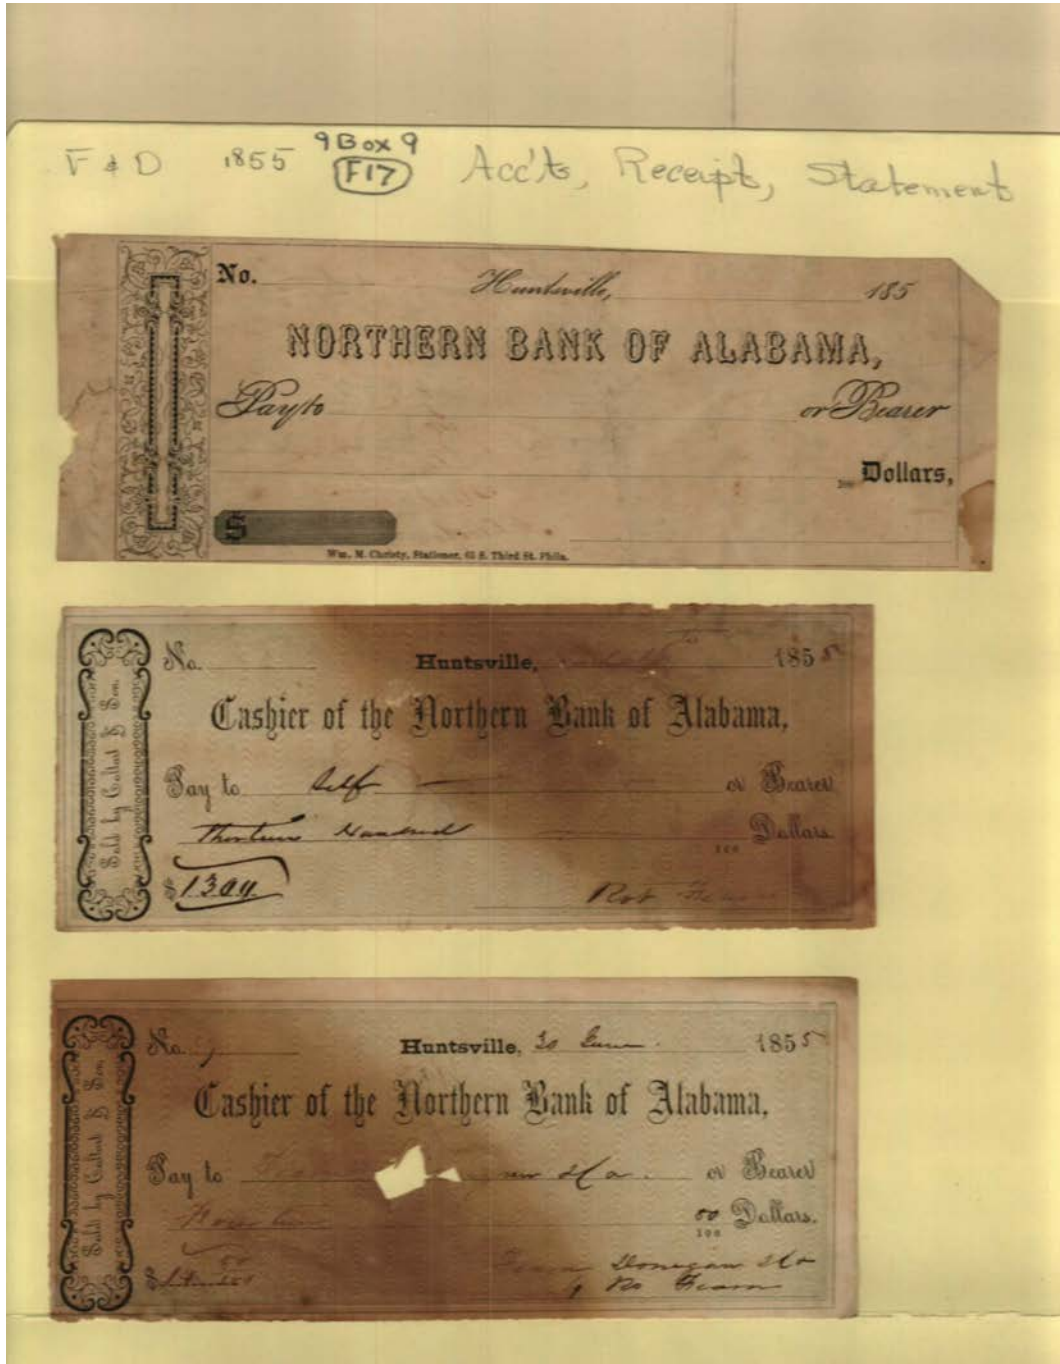 F & D 1855 9 Box 9 Acc'ts, Receipt, Statement
F17
No. Huntsville, 185
NORTHERN BANK OF ALABAMA,
Pay to or Bearer
100 Dollars,
$
Wm. M. Christy, Stationer, 65 S. Third St. Phila.
No. Huntsville, 1855
Cashier of the Northern Bank of Alabama,
Pay to Self or Bearer
Thirteen Hundred 100 Dollars
$ 1300
Robt Fearn
Sold by Coltart & Son.
No. Huntsville, 30 June 1855
Cashier of the Northern Bank of Alabama,
Pay to or Bearer
00
100 Dollars.
$
Fearn Donegan & Co
Ro Fearn
Sold by Coltart & Son.